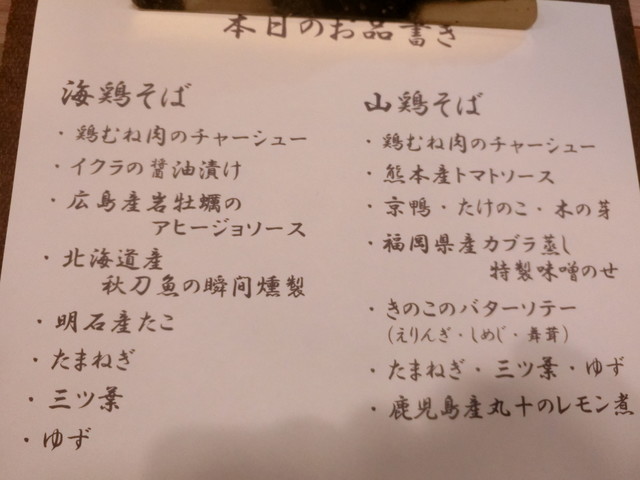 本日のお品書き
海鶏そば
・鶏むね肉のチャーシュー
・イクラの醤油漬け
・広島産岩牡蠣の
アヒージョソース
・北海道産
秋刀魚の瞬間燻製
・明石産たこ
・たまねぎ
・三ツ葉
・ゆず
山鶏そば
・鶏むね肉のチャーシュー
・熊本産トマトソース
・京鴨・たけのこ・木の芽
・福岡県産カブラ蒸し
特製味噌のせ
・きのこのバターソテー
(えりんぎ・しめじ・舞茸)
・たまねぎ・三ツ葉・ゆず
・鹿児島産丸十のレモン煮